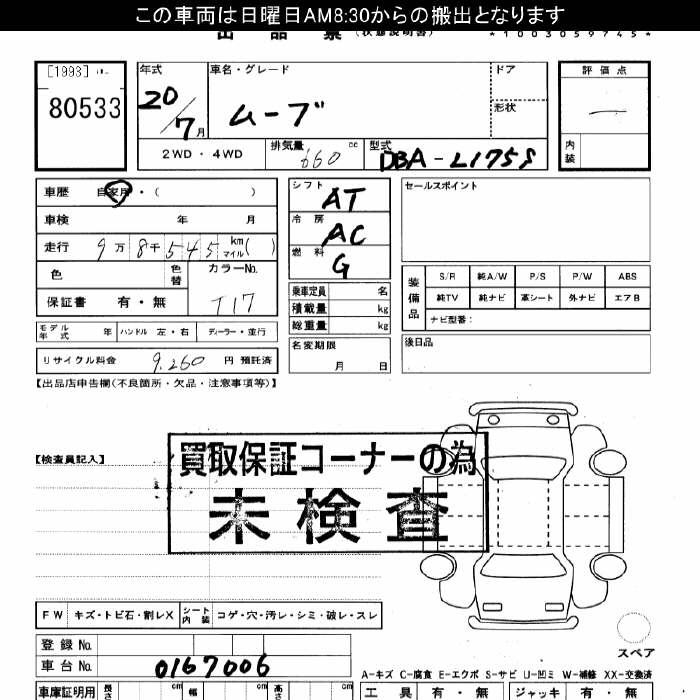 この車両は日曜日AM8:30からの搬出となります
出品票 (状態説明書) *1003059745*
[1993]
80533
年式 車名・グレード ドア 評価点
20/7月 ムーブ 形状 —
2WD・4WD 排気量 660 cc 型式 DBA-L175S 内装
車歴 自家用・( )
車検 年 月
走行 9万8千545 km マイル ( )
色 色替 カラーNo.
保証書 有・無 T17
モデル年式 年 ハンドル 左・右 ディーラー・並行
リサイクル料金 9,260 円 預託済
シフト AT
冷房 AC
燃料 G
乗車定員 名
積載量 kg
総重量 kg
名変期限
月 日
セールスポイント
装備品 S/R 純A/W P/S P/W ABS
純TV 純ナビ 革シート 外ナビ エアB
ナビ型番:
後日品
【出品店申告欄(不良箇所・欠品・注意事項等)】
【検査員記入】
買取保証コーナーの為
未検査
FW キズ・トビ石・割レX シート内装 コゲ・穴・汚レ・シミ・破レ・スレ
登録No.
車台No. 0167006
スペア
A-キズ C-腐食 E-エクボ S-サビ U-凹ミ W-補修 XX-交換済
車庫証明用 長さ cm 幅 cm 高さ cm 工具 有・無 ジャッキ 有・無